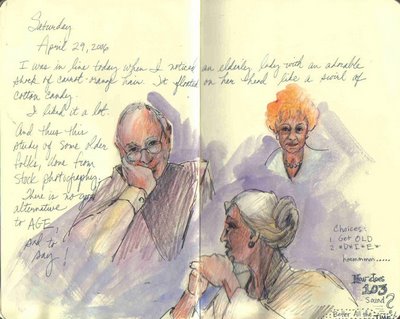 Saturday
April 29, 2006
I was in line today when I noticed an elderly lady with an adorable
shock of carrot-orange hair. It floated on her head like a swirl of
cotton candy.
I liked it a lot.
And thus this
study of some older
folks, done from
stock photography.
There is no
alternative
to AGE,
sad to
say!
Choices:
1. Get OLD
2. *D*I*E*
hmmmmm.....
How does
103
Sound?
Better All the
TIME!